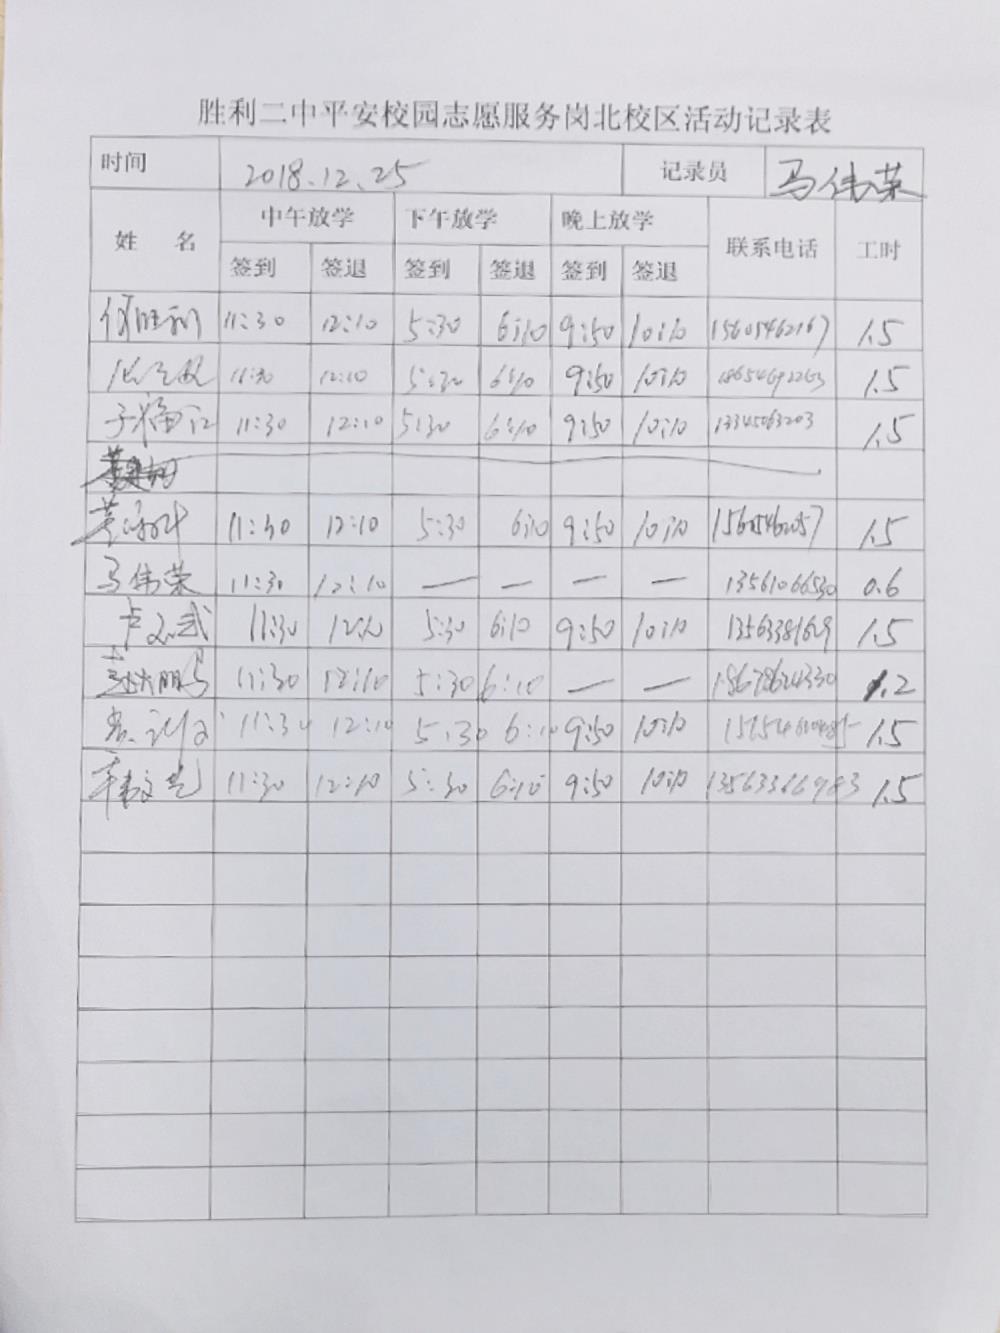 胜利二中平安校园志愿服务岗北校区活动记录表
时间 2018.12.25 记录员 马伟荣
姓 名 中午放学 下午放学 晚上放学 联系电话 工时
签到 签退 签到 签退 签到 签退
何胜利 11:30 12:10 5:30 6:10 9:50 10:10 15605462167 1.5
11:30 12:10 5:30 6:10 9:50 10:10 1.5
11:30 12:10 5:30 6:10 9:50 10:10 1.5
11:30 12:10 5:30 6:10 9:50 10:10 1.5
马伟荣 11:30 12:10 — — — — 13561066530 0.6
11:30 12:10 5:30 6:10 9:50 10:10 1.5
11:30 12:10 5:30 6:10 — — 18678624330 1.2
11:30 12:10 5:30 6:10 9:50 10:10 1.5
11:30 12:10 5:30 6:10 9:50 10:10 13563366983 1.5